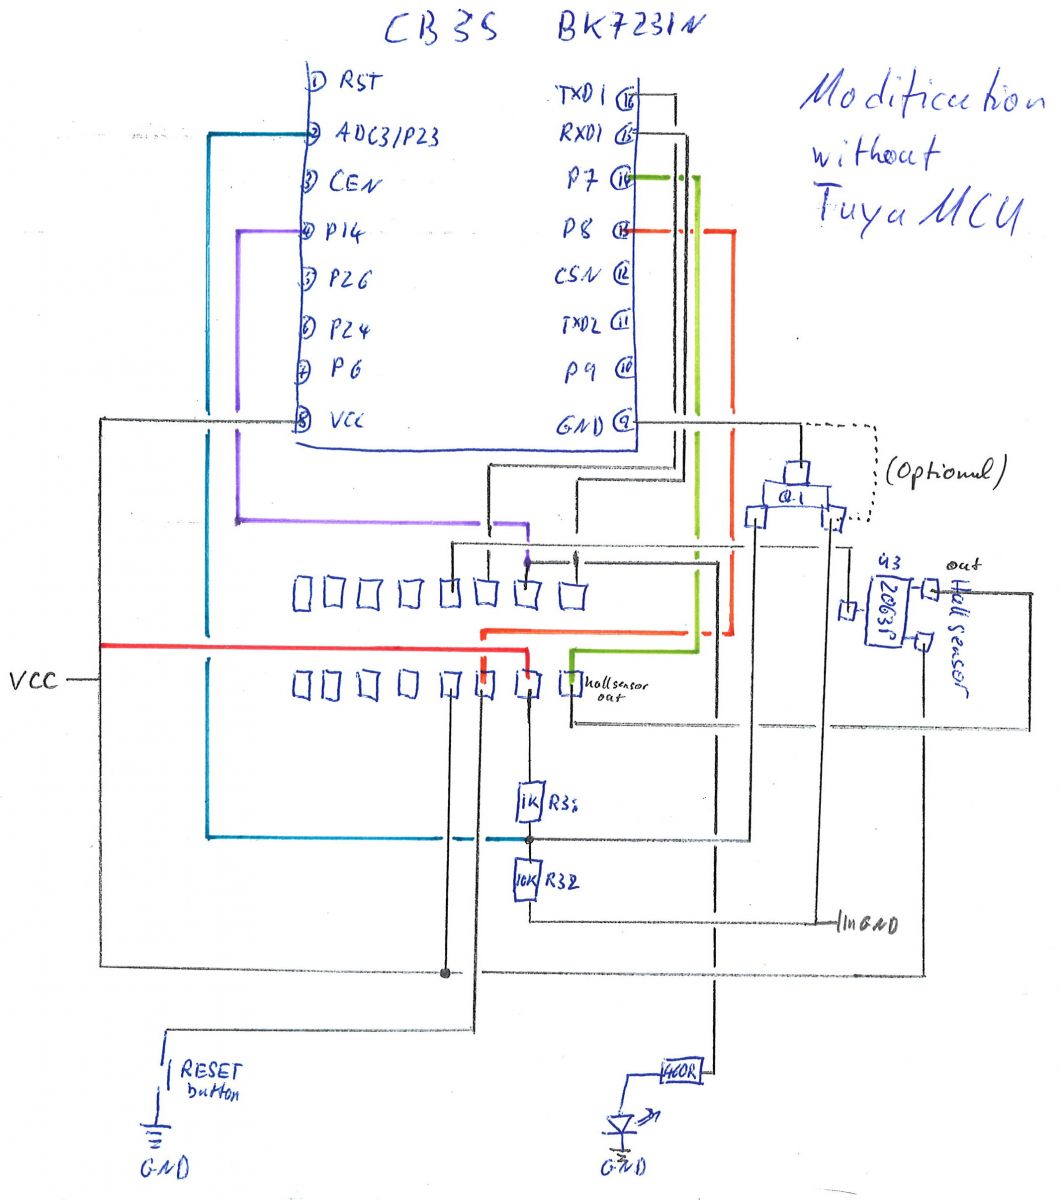 CB3S BK7231N
Modification
without
Tuya MCU
1 RST
2 ADC3/P23
3 CEN
4 P14
5 P26
6 P24
7 P6
8 VCC
TXD1 16
RXD1 15
P7 14
P8 13
CSN 12
TXD2 11
P9 10
GND 9
(Optional)
Q1
U3
out
Hall sensor
VCC
hallsensor
out
1K
10K R32
InGND
RESET
button
GND
460R
GND